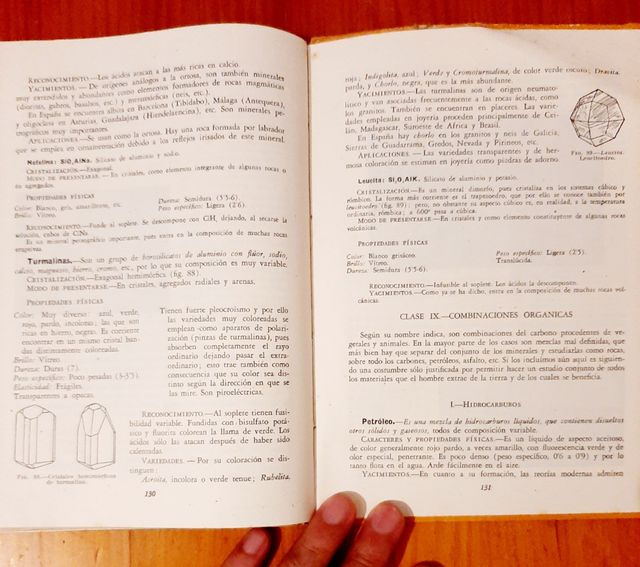 RECONOCIMIENTO.—Los ácidos atacan a las más ricas en calcio.
YACIMIENTOS.—De orígenes análogos a la ortosa, son también minerales
muy extendidos y abundantes como elementos formadores de rocas magmáticas
(dioritas, gabros, basaltos, etc.) y metamórficas (neis, etc.).
En España se encuentra albita en Barcelona (Tibidabo), Málaga (Antequera),
y oligoclasa en Asturias, Guadalajara (Hiendelaencina), etc. Son minerales pe-
trográficos muy importantes.
APLICACIONES.—Se usan como la ortosa. Hay una roca formada por labrador
que se emplea en ornamentación debido a los reflejos irisados de este mineral.
Nefelina: SiO₄AlNa. Silicato de aluminio y sodio.
CRISTALIZACIÓN.—Exagonal.
MODO DE PRESENTARSE.—En cristales, como elemento integrante de algunas rocas o
en agregados.
PROPIEDADES FÍSICAS
Color: Blanco, gris, amarillento, etc.
Brillo: Vítreo.
Dureza: Semidura (5'5-6).
Peso específico: Ligera (2'6).
RECONOCIMIENTO.—Funde al soplete. Se descompone con ClH, dejando, al secarse la
solución, cubos de ClNa.
Es un mineral petrográfico importante, pues entra en la composición de muchas rocas
eruptivas.
Turmalinas.—Son un grupo de borosilicatos de aluminio con flúor, sodio,
calcio, magnesio, hierro, cromo, etc., por lo que su composición es muy variable.
CRISTALIZACIÓN.—Exagonal hemimórfica (fig. 88).
MODO DE PRESENTARSE.—En cristales, agregados radiales y arenas.
PROPIEDADES FÍSICAS
Color: Muy diverso: azul, verde,
rojo, pardo, incoloras; las que son
ricas en hierro, negro. Es corriente
encontrar en un mismo cristal ban-
das distintamente coloreadas.
Brillo: Vítreo.
Dureza: Duras (7).
Peso específico: Poco pesadas (3-3'5).
Elasticidad: Frágiles.
Transparentes a opacas.
Tienen fuerte pleocroísmo y por ello
las variedades muy coloreadas se
emplean como aparatos de polari-
zación (pinzas de turmalinas), pues
absorben completamente el rayo
ordinario dejando pasar el extra-
ordinario; esto trae también como
consecuencia que su color sea dis-
tinto según la dirección en que se
las mire. Son piroeléctricas.
FIG. 88.—Cristales hemimórficos
de turmalina.
RECONOCIMIENTO.—Al soplete tienen fusi-
bilidad variable. Fundidas con bisulfato potá-
sico y fluorita colorean la llama de verde. Los
ácidos sólo las atacan después de haber sido
calentadas.
VARIEDADES.—Por su coloración se dis-
tinguen:
Acroíta, incolora o verde tenue; Rubelita,
130
roja; Indigolita, azul; Verde y Cromoturmalina, de color verde oscuro; Dravita,
parda, y Chorlo, negra, que es la más abundante.
YACIMIENTOS.—Las turmalinas son de origen neumato-
lítico y van asociadas frecuentemente a las rocas ácidas, como
los granitos. También se encuentran en placeres. Las varie-
dades empleadas en joyería proceden principalmente de Cei-
lán, Madagascar, Suroeste de África y Brasil.
En España hay chorlo en los granitos y neis de Galicia,
Sierras de Guadarrama, Gredos, Nevada y Pirineos, etc.
APLICACIONES.—Las variedades transparentes y de her-
mosa coloración se estiman en joyería como piedras de adorno.
FIG. 89.—Leucita.
Leucitoedro.
Leucita: Si₂O₆AlK. Silicato de aluminio y potasio.
CRISTALIZACIÓN.—Es un mineral dimorfo, pues cristaliza en los sistemas cúbico y
rómbico. La forma más corriente es el trapezoedro, que por ello se conoce también por
leucitoedro (fig. 89); pero, no obstante su aspecto cúbico es, en realidad, a la temperatura
ordinaria, rómbica; a 600° pasa a cúbica.
MODO DE PRESENTARSE.—En cristales y como elemento constituyente de algunas rocas
volcánicas.
PROPIEDADES FÍSICAS
Color: Blanco grisáceo.
Brillo: Vítreo.
Dureza: Semidura (5'5-6).
Peso específico: Ligera (2'5).
Translúcida.
RECONOCIMIENTO.—Infusible al soplete. Los ácidos la descomponen.
YACIMIENTOS.—Como ya se ha dicho, entra en la composición de muchas rocas vol-
cánicas.
CLASE IX.—COMBINACIONES ORGANICAS
Según su nombre indica, son combinaciones del carbono procedentes de ve-
getales y animales. En la mayor parte de los casos son mezclas mal definidas, que
más bien hay que separar del conjunto de los minerales y estudiarlas como rocas,
sobre todo los carbones, petróleos, asfalto, etc. Si los incluímos aquí es siguien-
do una costumbre sólo justificada por permitir hacer un estudio conjunto de todos
los materiales que el hombre extrae de la tierra y de los cuales se beneficia.
I.—HIDROCARBUROS
Petróleo.—Es una mezcla de hidrocarburos líquidos, que contienen disueltos
otros sólidos y gaseosos, todos de composición variable.
CARACTERES Y PROPIEDADES FÍSICAS.—Es un líquido de aspecto aceitoso,
de color generalmente rojo pardo, a veces amarillo, con fluorescencia verde y de
olor especial, penetrante. Es poco denso (peso específico, 0'6 a 0'9) y por lo
tanto flota en el agua. Arde fácilmente en el aire.
YACIMIENTOS.—En cuanto a su formación, las teorías modernas admiten
131